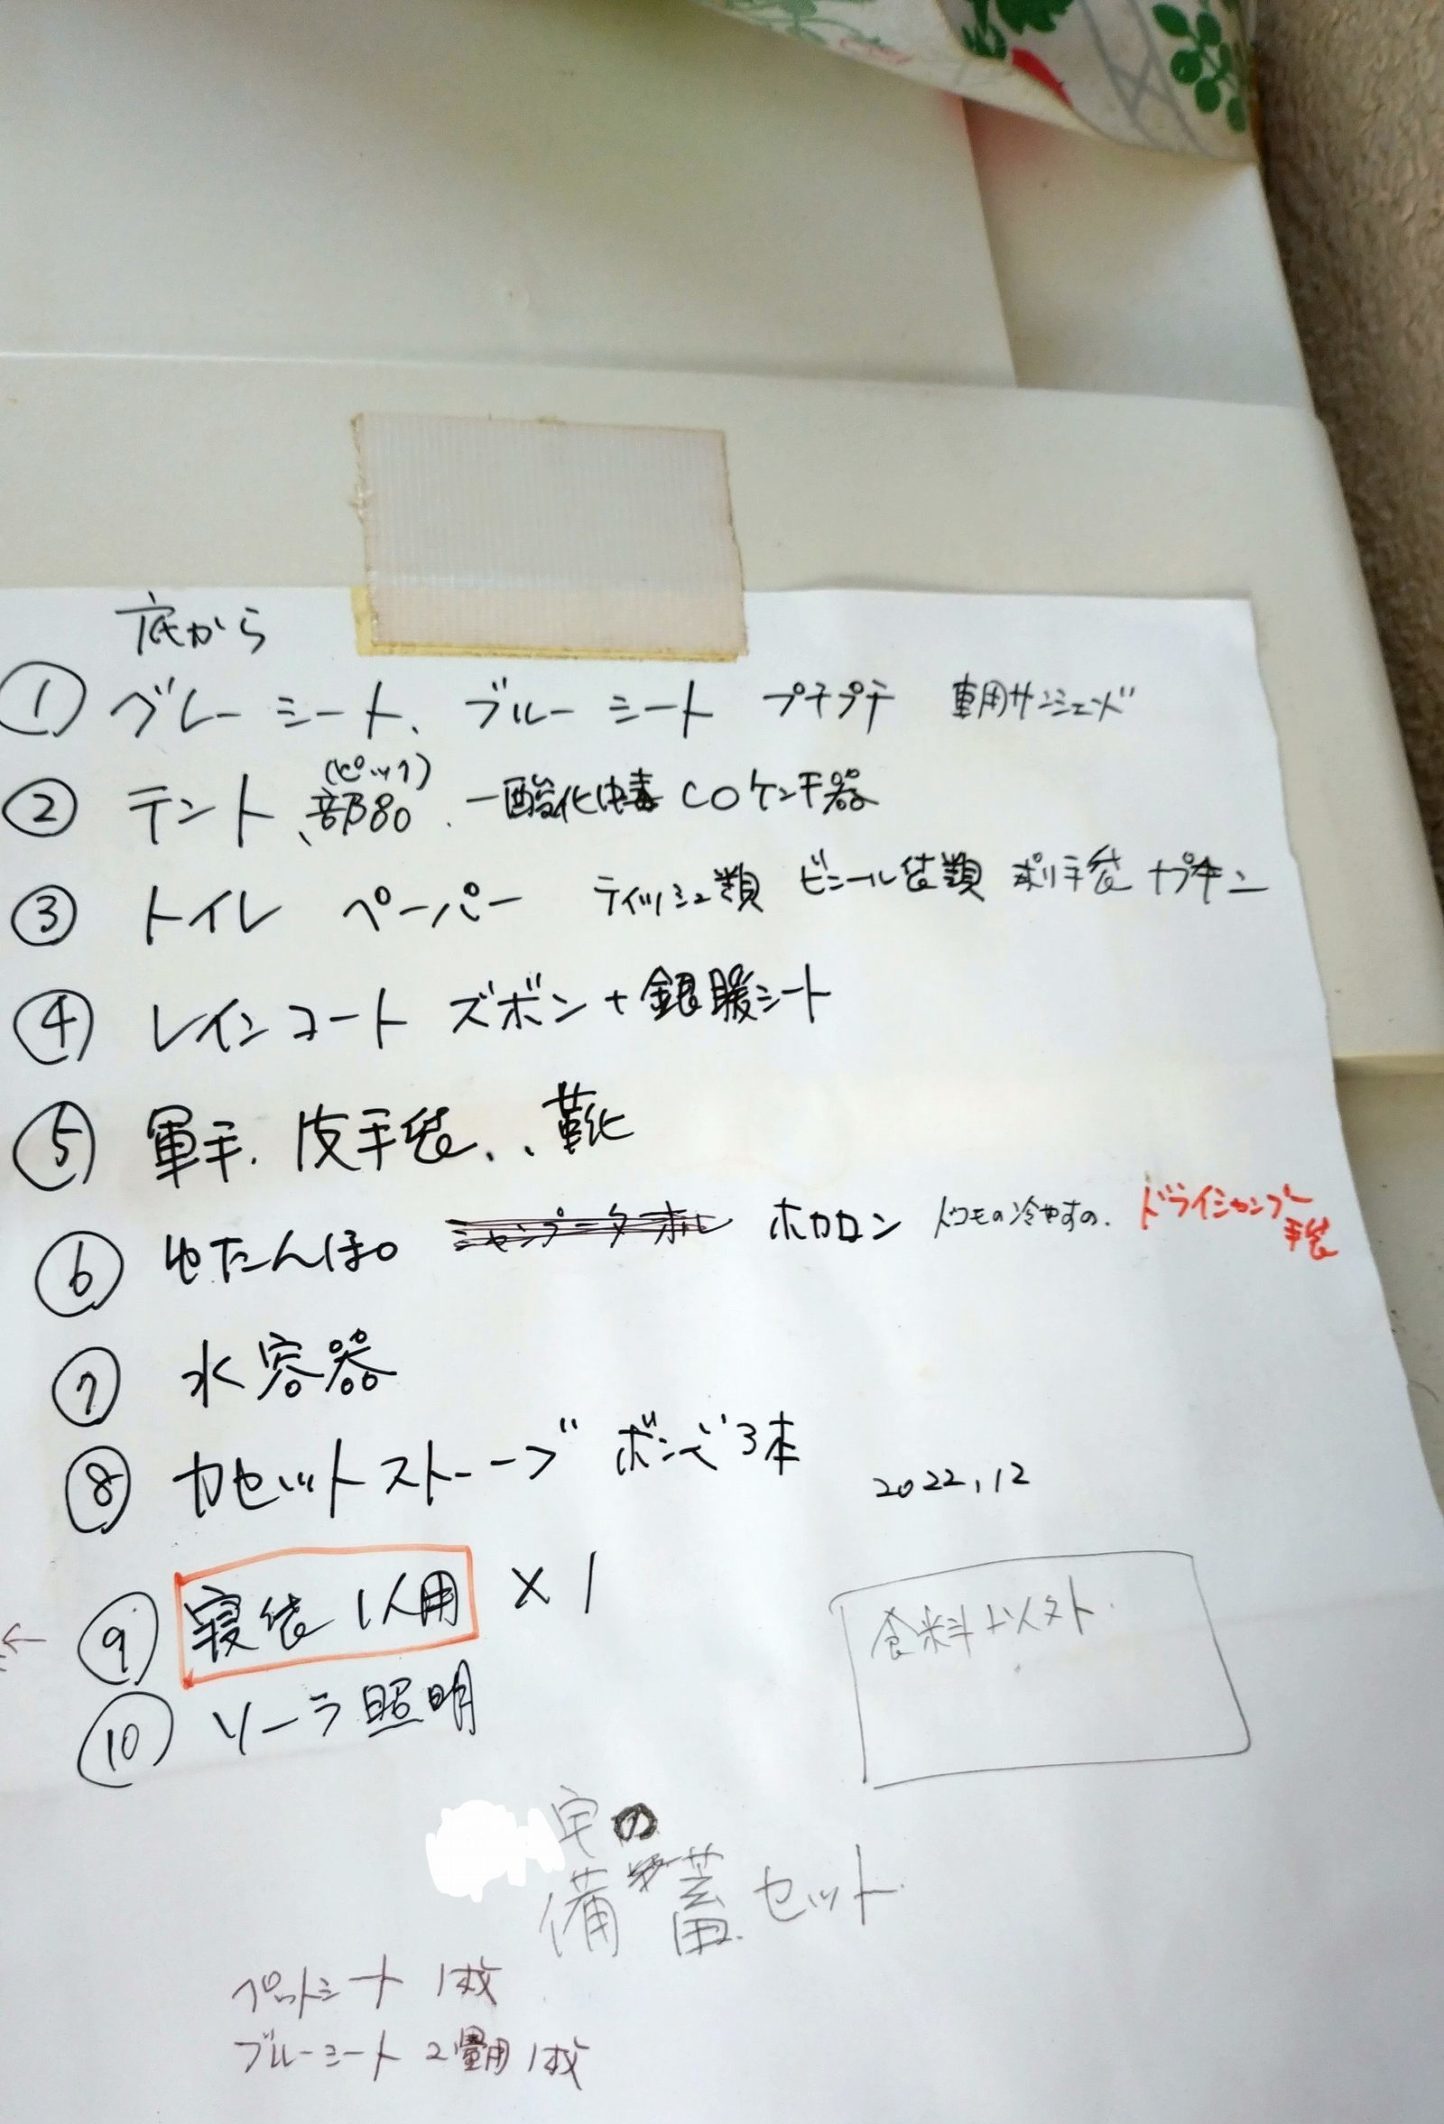 底から
① グレーシート、ブルーシート プチプチ 車用サンシェード
(ピック)
② テント、部80. 一酸化中毒 COケンチ器
③ トイレ ペーパー ティッシュ類 ビニール袋類 ポリ手袋 ナプキン
④ レインコート ズボン+銀暖シート
⑤ 軍手. 皮手袋、、靴
⑥ ゆたんぽ シャンプータオル ホカロン 冷やすの. ドライシャンプー
手袋
⑦ 水容器
⑧ カセットストーブ ボンベ3本
2022.12
⑨ 寝袋 1人用 ×1
食料以外
⑩ ソーラ照明
宅の
備蓄セット
ペットシート 1枚
ブルーシート 2畳用 1枚